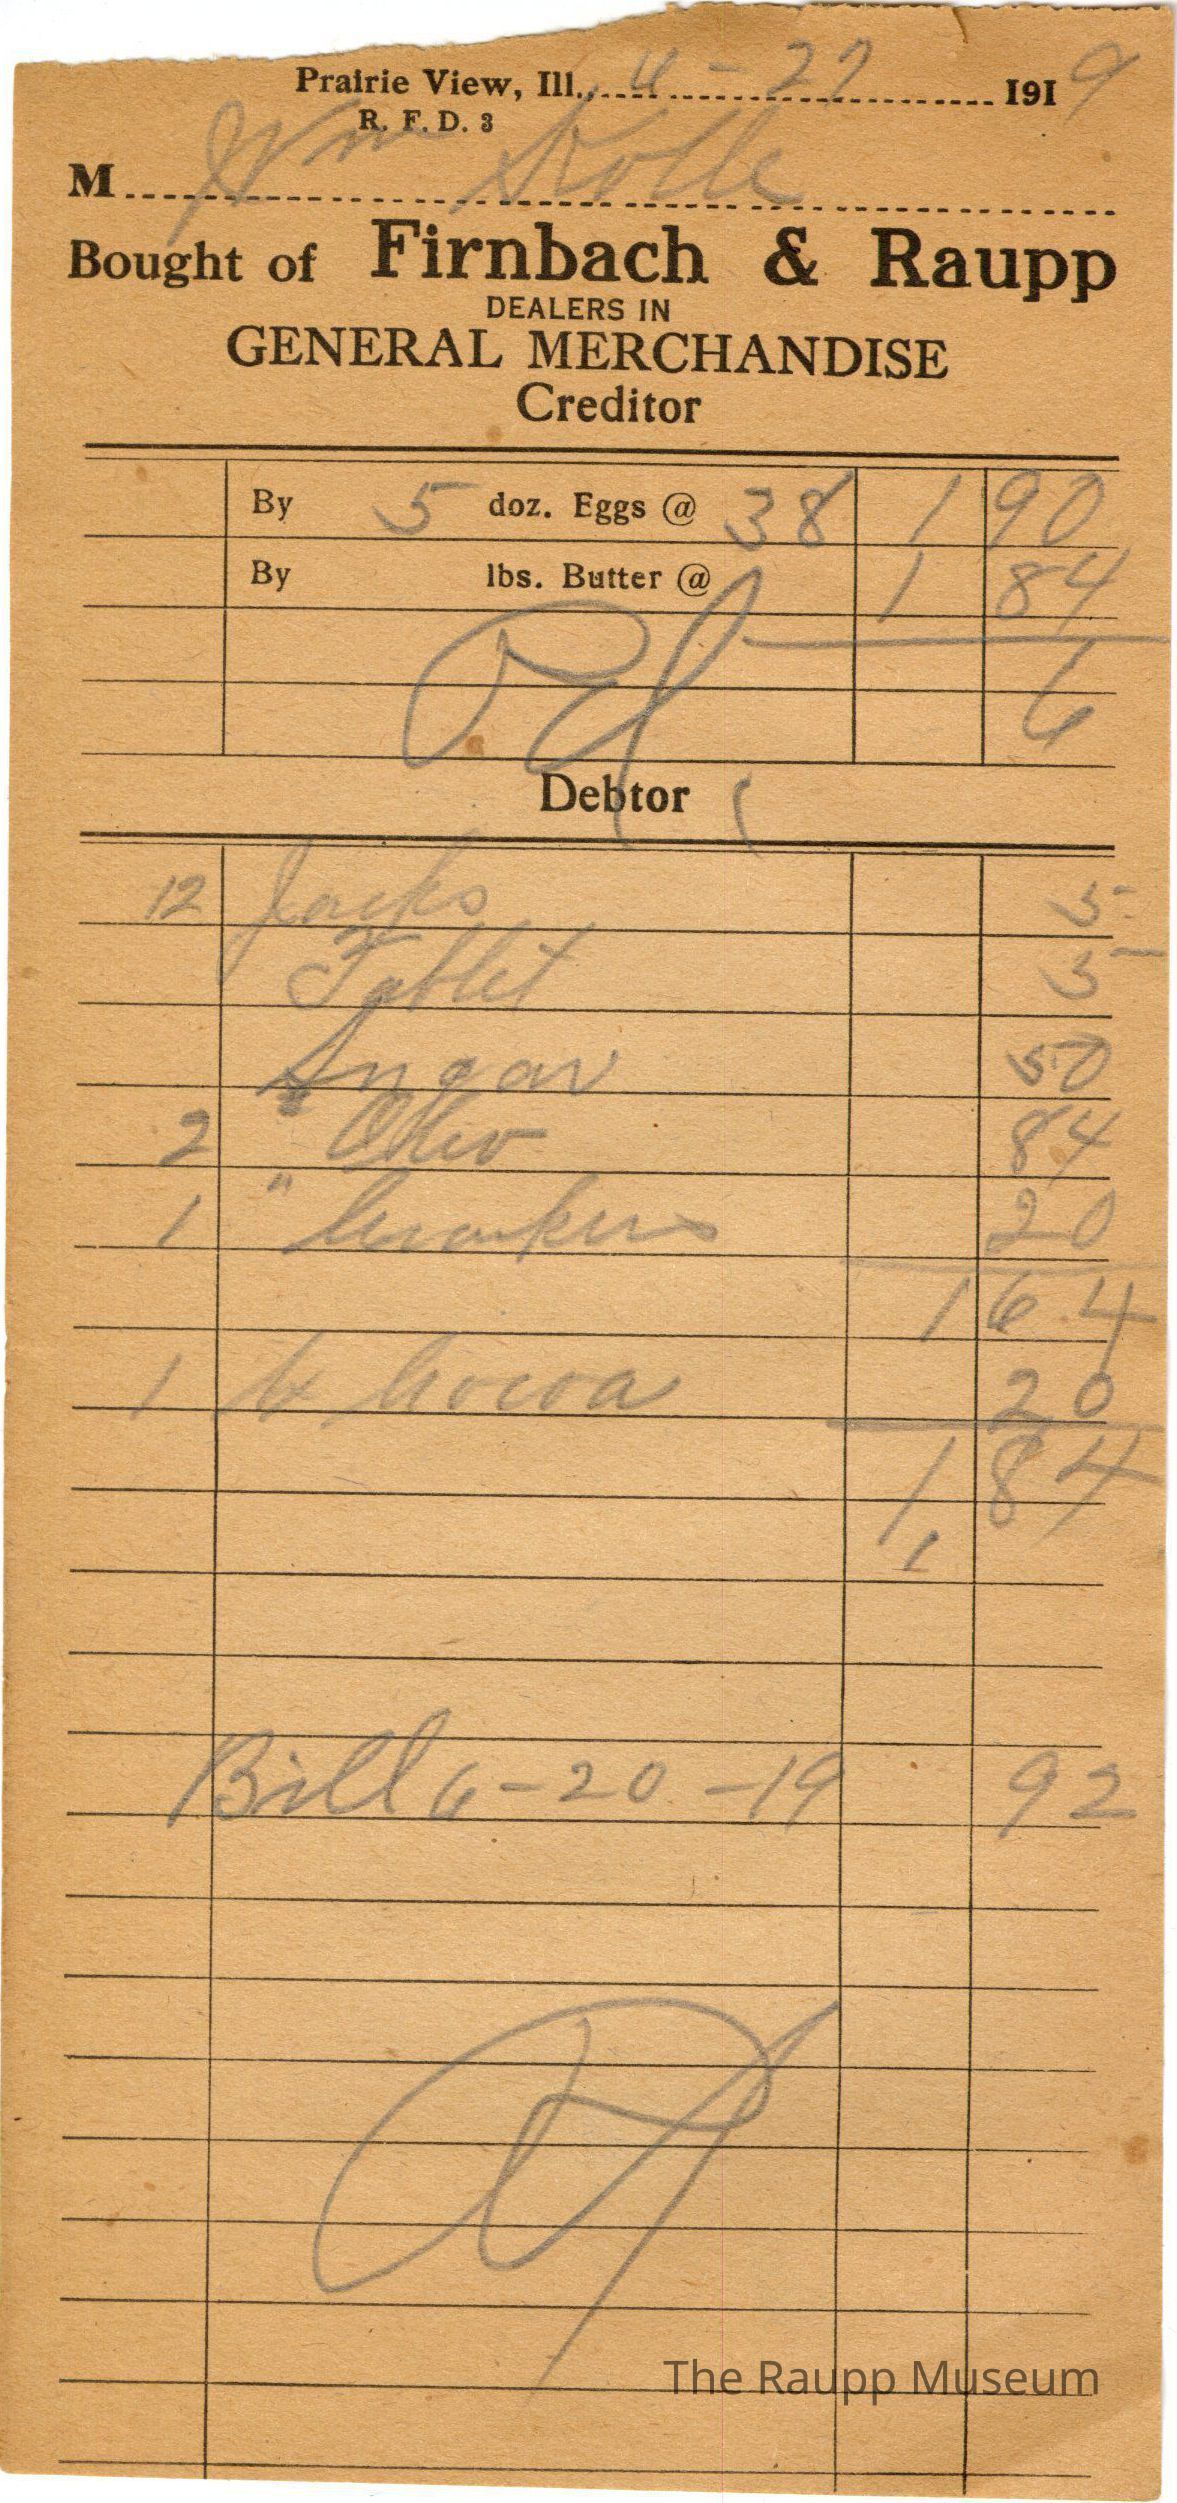 Prairie View, Ill., 4 - 27 1919
R. F. D. 3
M Wm Kolle
Bought of Firnbach & Raupp
DEALERS IN
GENERAL MERCHANDISE
Creditor
By 5 doz. Eggs @ 38 1 90
By lbs. Butter @ 1 84
Pd 6
Debtor
12 Jacks 5
Tablet 5
Sugar 50
2 " Oleo 84
1 " Crackers 20
1 64
1 Cocoa 20
1 84
Bill 6 - 20 - 19 92
The Raupp Museum